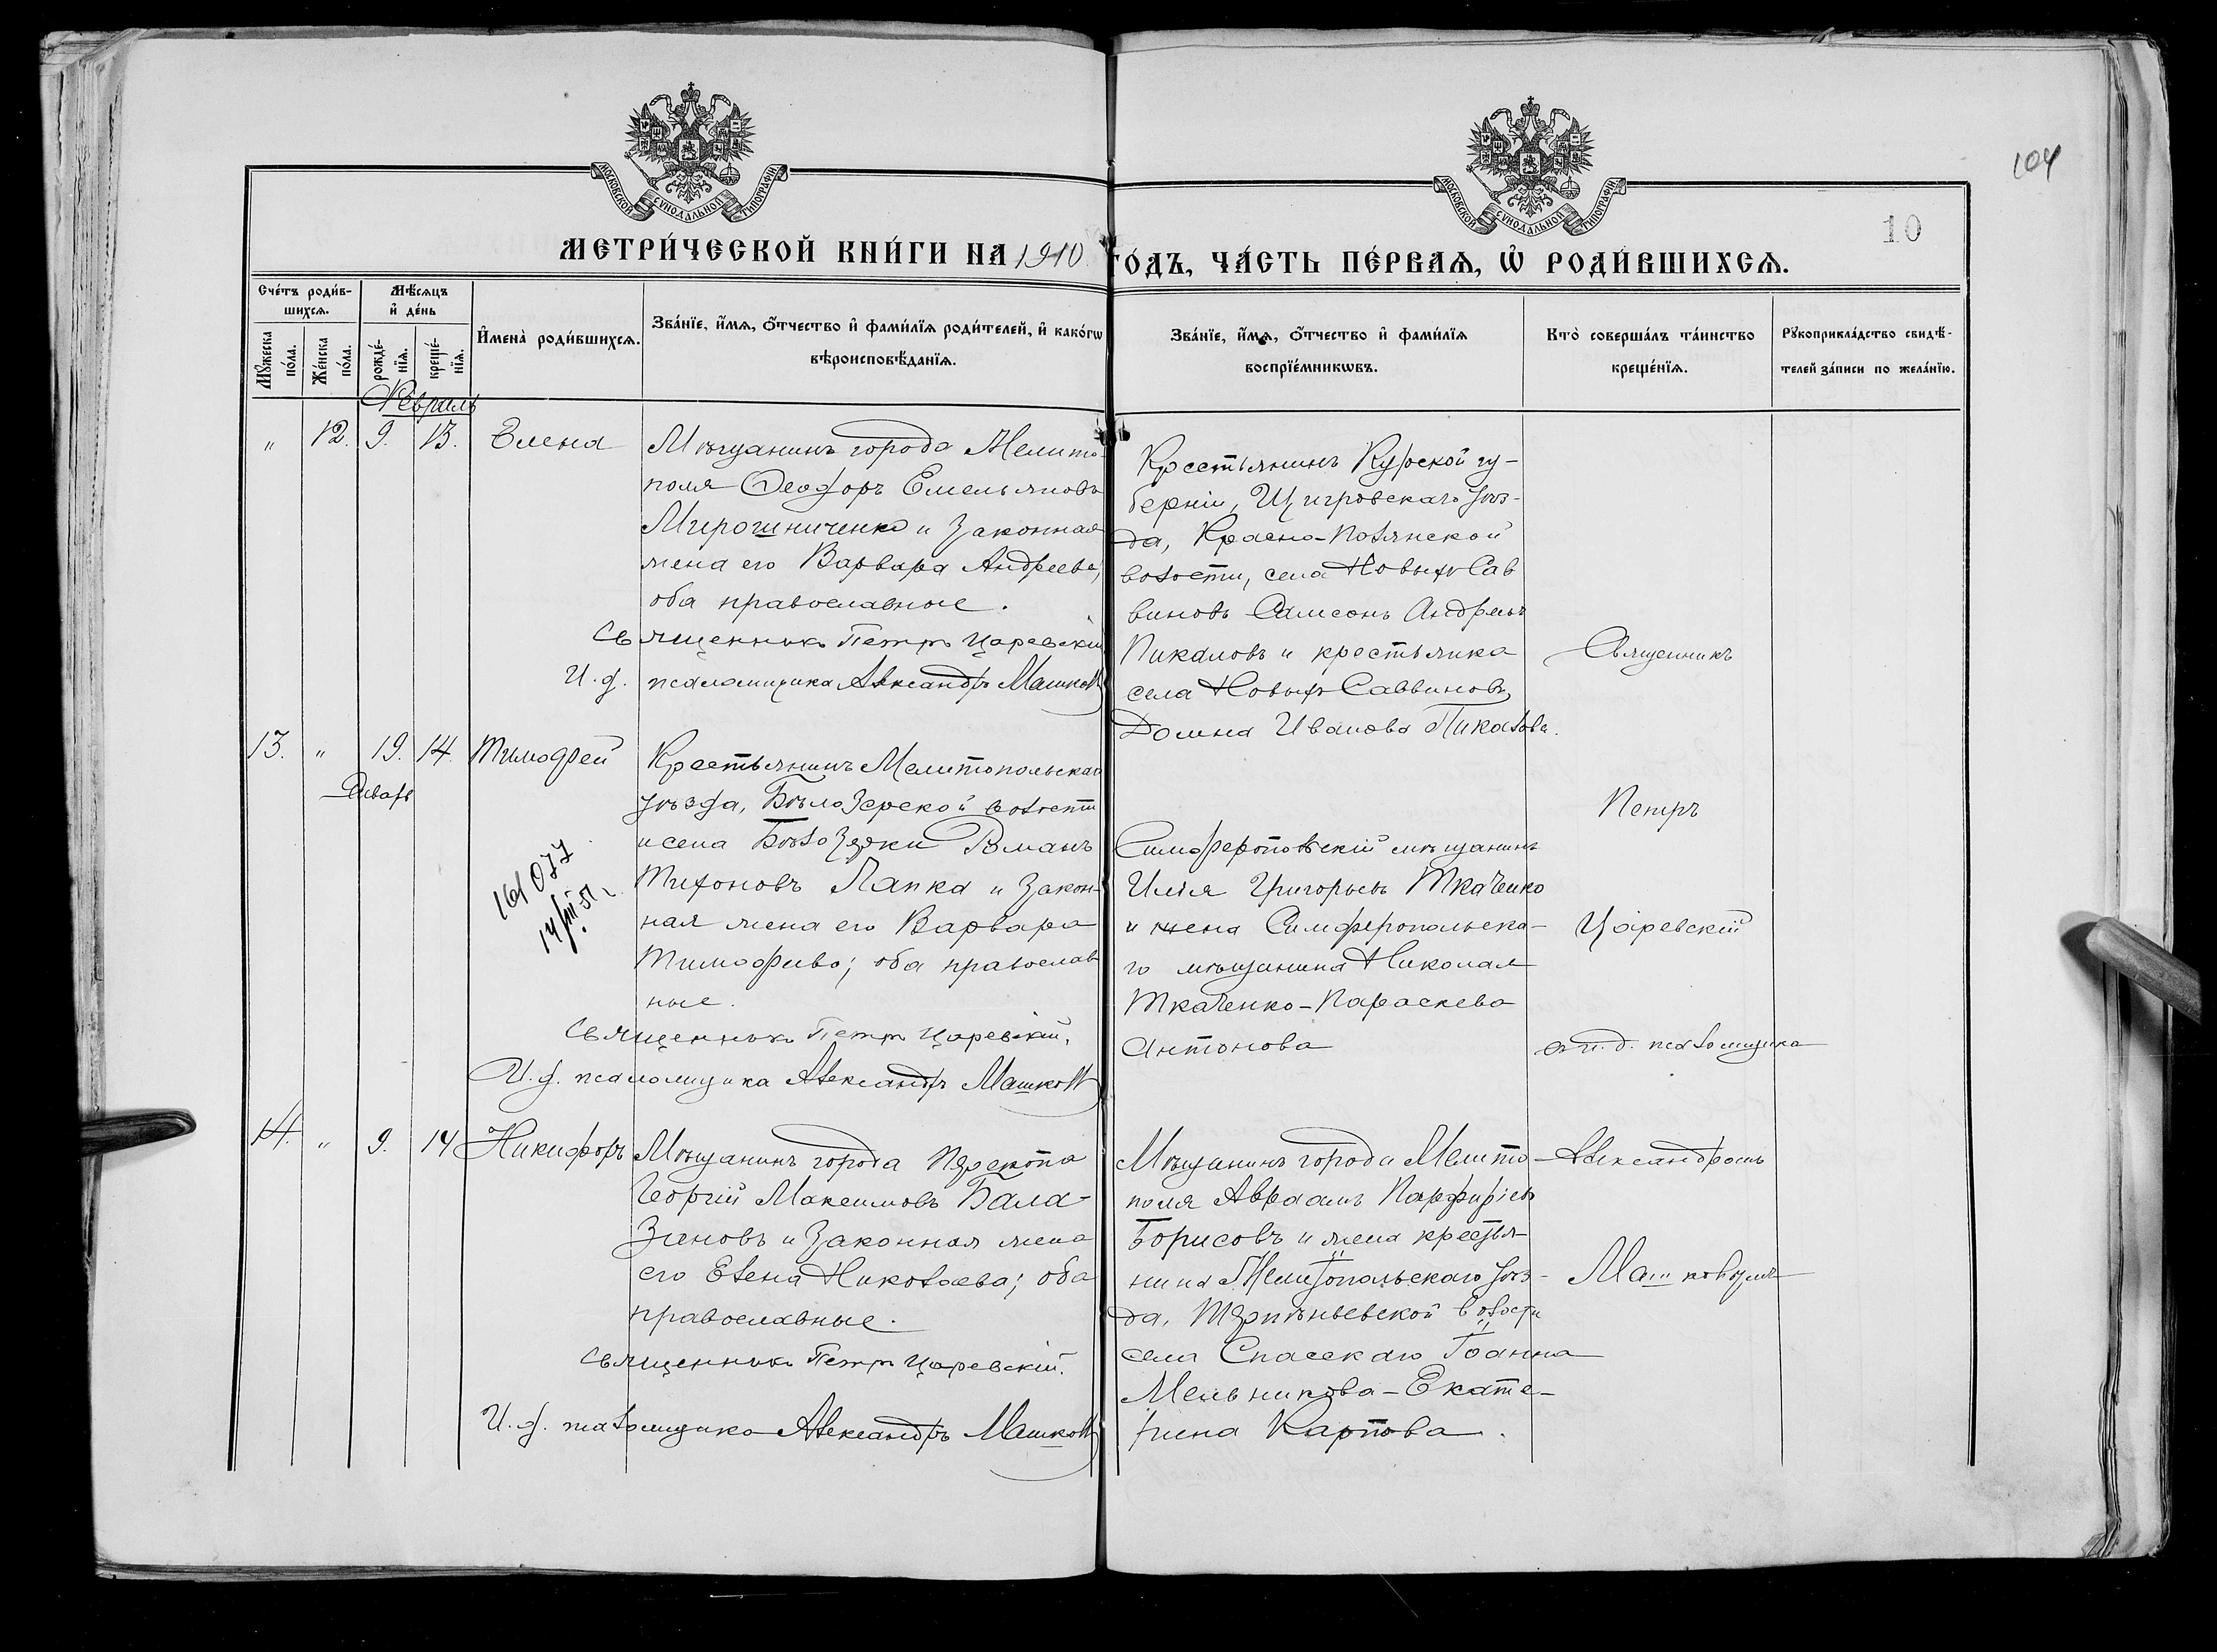 104
10
МОСКОВСКОЙ СѴНОДАЛЬНОЙ ТИПОГРАФІИ
МОСКОВСКОЙ СѴНОДАЛЬНОЙ ТИПОГРАФІИ
МЕТРИ́ЧЕСКОЙ КНИ́ГИ НА 1910 ГО́ДЪ, ЧА́СТЬ ПЕ́РВАѦ, Ѡ҆ РОДИ́ВШИХСѦ.
Сче́тъ роди́в-
шихсѧ.
Мꙋ́жеска
по́ла.
Же́нска
по́ла.
Мѣ́сѧцъ
и҆ де́нь
рожде́-
нїѧ.
креще́-
нїѧ.
И҆мена̀ роди́вшихсѧ.
Зва́нїе, и҆́мѧ, ѻ҆́тчество и҆ фами́лїѧ роди́телей, и҆ како́гѡ
вѣроисповѣ́данїѧ.
Зва́нїе, и҆́мѧ, ѻ҆́тчество и҆ фами́лїѧ
воспрїе́мникѡвъ.
Кто̀ соверша́лъ та́инство
креще́нїѧ.
Рꙋкоприкла́дство свидѣ́-
телей за́писи по жела́нїю.
Февраль
" 12. 9. 13. Елена
Мѣщанинъ города Мелито-
поля Феодоръ Емельяновъ
Мирошниченко и законная
жена его Варвара Андреева,
оба православные.
Священникъ Петръ Царевскій
И.д. псаломщика Александръ Машковъ
Крестьянинъ Курской гу-
берніи, Щигровскаго уѣз-
да, Красно-Полянской
волости, села Новыхъ Сав
виновъ Самсонъ Андреевъ
Пикаловъ и крестьянка
села Новыхъ Саввиновъ
Домна Иванова Пикалова.
13. " 19. 14. Тимофей
Январь
161077
14/III 51
Крестьянинъ Мелитопольскаго
уѣзда, Бѣлозерской волости
и села Бѣлозерки Романъ
Тихоновъ Лапка и закон-
ная жена его Варвара
Тимофеева; оба православ
ные.
Священникъ Петръ Царевскій.
И.д. псаломщика Александръ Машковъ
Симферопольскій мѣщанинъ
Илія Григорьевъ Ткаченко
и жена Симферопольска-
го мѣщанина Николая
Ткаченко-Параскева
Антонова
14. " 9. 14 Никифоръ
Мѣщанинъ города Перекопа
Георгій Максимовъ Бала-
зановъ и законная жена
его Елена Николаева; оба
православные.
Священникъ Петръ Царевскій.
И.д. псаломщика Александръ Машковъ
Мѣщанинъ города Мелито-
поля Авраамъ Парфиріевъ
Борисовъ и жена крестья-
нина Мелитопольскаго уѣз-
да, Терпѣньевской волости
села Спасскаго Іоанна
Мельникова-Екате-
рина Карпова.
Священникъ
Петръ
Царевскій
съ и.д. псаломщика
Александромъ
Машковымъ